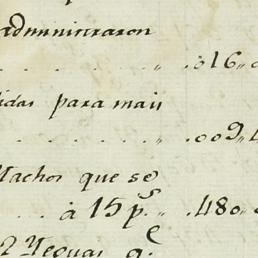 administraron
. . . . . . „ .016„
didas para mais
. . . . . . „ .009„4
Machos que se
. . . à 15 p.s „ .480„
2 Yeguas q.e